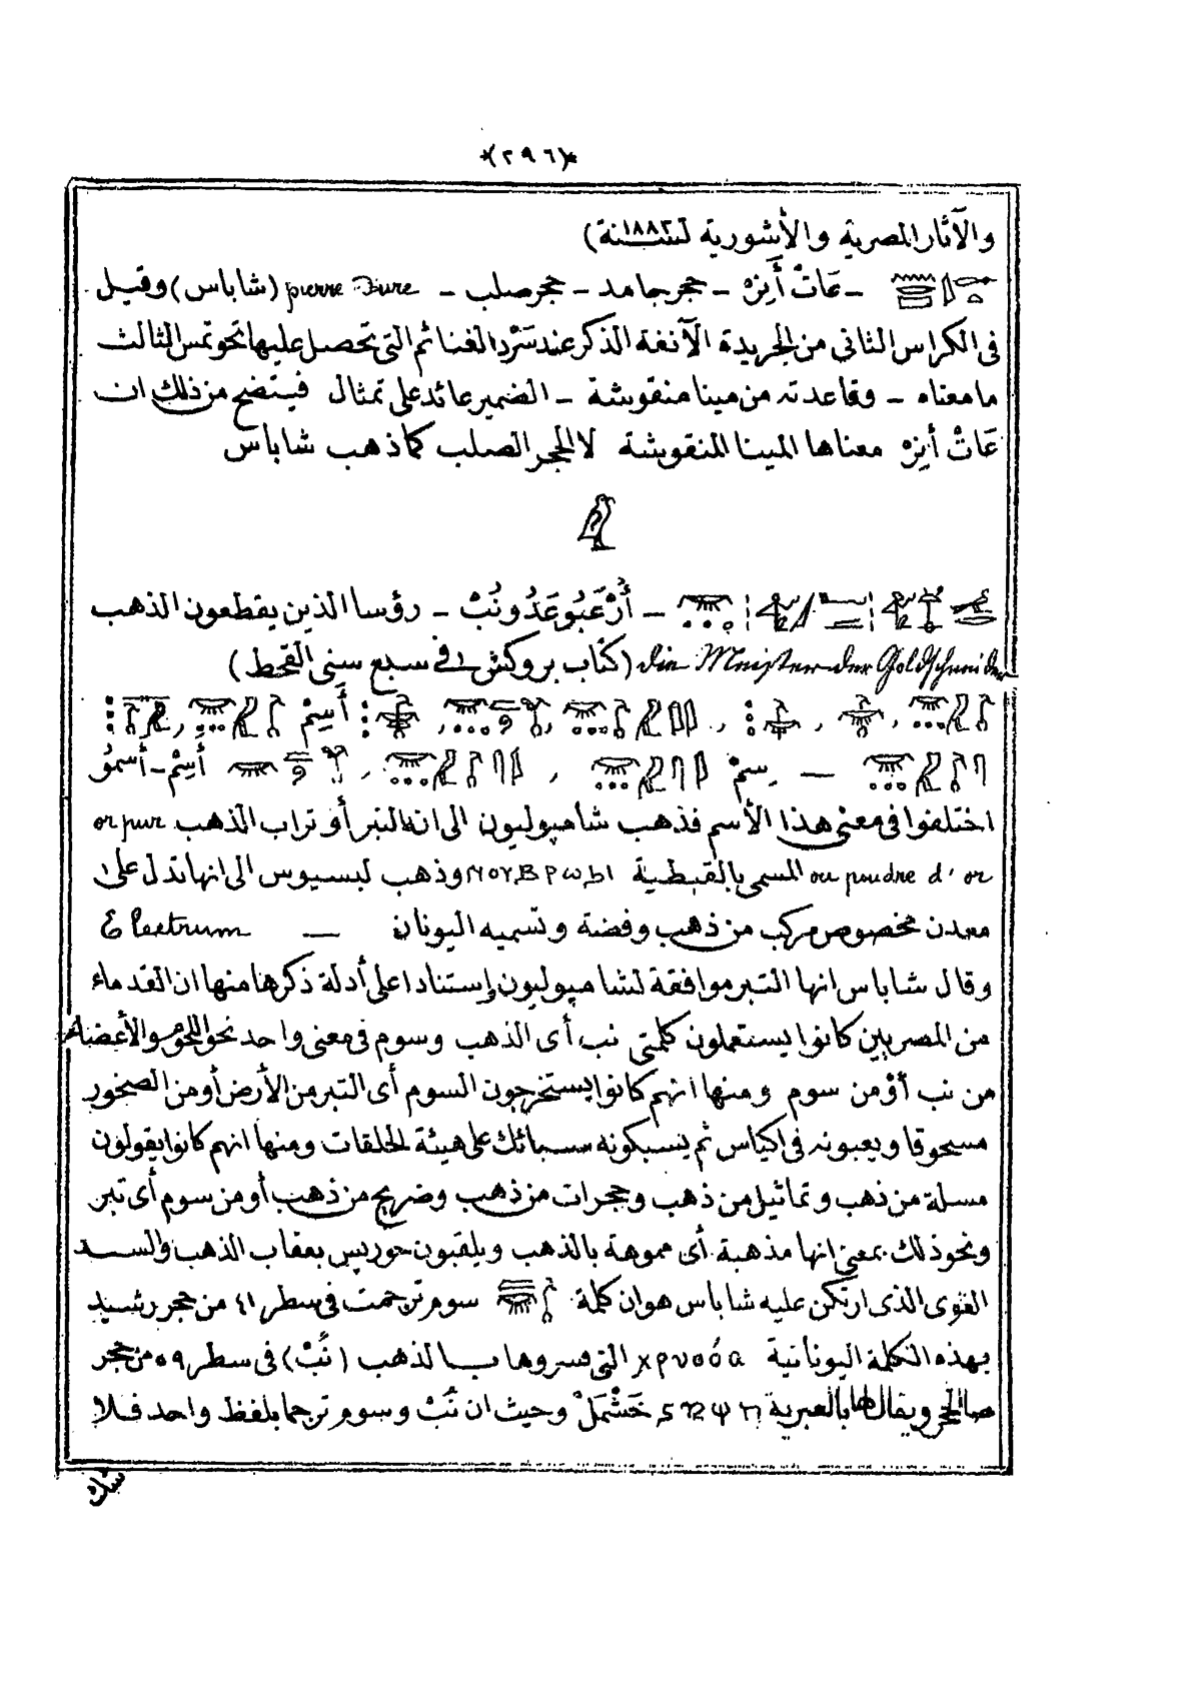 *(٢٩٦)*
والآثار المصرية والأشورية لسنة ١٨٨٢)
ـ عَاتْ أَنِزْ ـ حجر جامد ـ حجر صلب ـ pierre Dure (شاباس) وقيل
فى الكراس الثانى من الجريدة الآنفة الذكر عند سَرْد الغنائم التى تحصل عليها تحوتمس الثالث
ما معناه ـ وقاعدته من مينا منقوشة ـ الضمير عائد على تمثال فيتضح من ذلك ان
عَاتْ أنِزْ معناها المينا المنقوشة لا الحجر الصلب كما ذهب شاباس
ـ أُرْعَبُو عَدُونُبْ ـ رؤسا الذين يقطعون الذهب
die Meister der Goldschneider (كتاب بروكش فى سبع سنى القحط)
أَسِمْ
ـ سِمْ أَسِمْ ـ أسمُو
اختلفوا فى معنى هذا الأسم فذهب شامپوليون الى انه التبر أو تراب الذهب or pur
ou poudre d'or المسمى بالقبطية وذهب لبسيوس الى انها تدل على
معدن مخصوص مركب من ذهب وفضة وتسميه اليونان ـ Electrum
وقال شاباس انها التبر موافقة لشامپوليون إستنادا على أدلة ذكرها منها ان القدماء
من المصريين كانوا يستعملون كلمتى نب أى الذهب وسوم فى معنى واحد نحو اللحوم والأعضاء
من نب أوْ من سوم ومنها انهم كانوا يستخرجون السوم أى التبر من الأرض أو من الصخور
مسحوقا ويعبونه فى اكياس ثم يسبكونه سبائك على هيئة الحلقات ومنها انهم كانوا يقولون
مسلة من ذهب وتماثيل من ذهب وحجرات من ذهب وضريح من ذهب أو من سوم أى تبر
ونحو ذلك بمعنى انها مذهبة أى مموهة بالذهب ويلقبون حوريس بعقاب الذهب والسند
القوى الذى ارتكن عليه شاباس هو ان كلمة سوم ترجمت فى سطر ٤١ من حجر رشيد
بهذه الكلمة اليونانية χρυσόα التى فسروها بالذهب (نُبْ) فى سطر ٥٩ من حجر
صالحجر ويقال لها بالعبرية خَشْمَلْ وحيث ان نُبْ وسوم ترجما بلفظ واحد فلا
شك